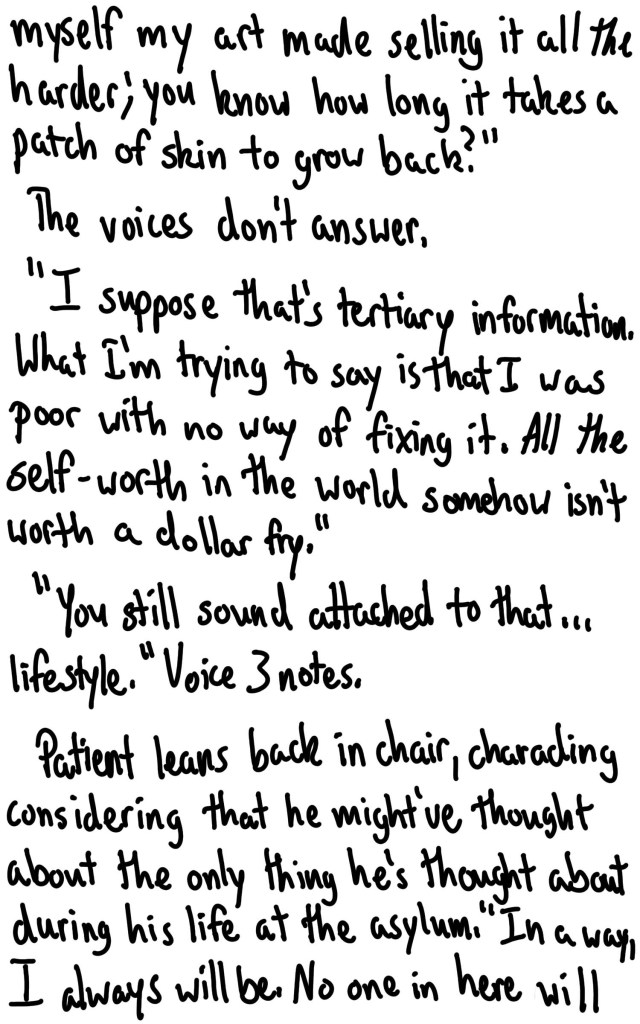 myself my art made selling it all the
harder; you know how long it takes a
patch of skin to grow back?"
The voices don't answer.
"I suppose that's tertiary information.
What I'm trying to say is that I was
poor with no way of fixing it. All the
self-worth in the world somehow isn't
worth a dollar fry."
"You still sound attached to that...
lifestyle." Voice 3 notes.
Patient leans back in chair, charading
considering that he might've thought
about the only thing he's thought about
during his life at the asylum. "In a way,
I always will be. No one in here will